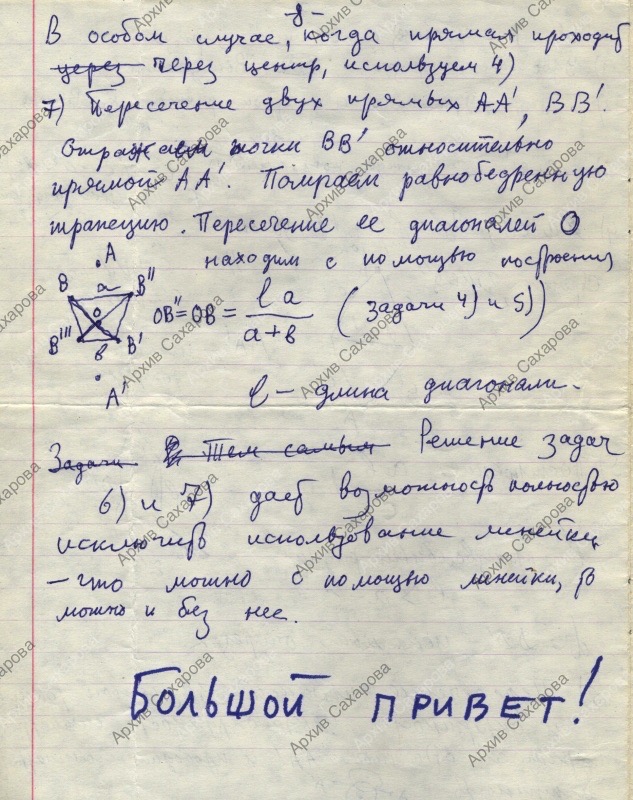 -8-
В особом случае, когда прямая проходит
через через центр, используем 4)
7) Пересечение двух прямых AA', BB'.
Отражаем точки BB' относительно
прямой AA'. Получаем равнобедренную
трапецию. Пересечение ее диагоналей O
находим с помощью построения
A
B a B''
O
B''' b B'
A'
OB''=OB = la / a+b (Задачи 4) и 5))
l – длина диагонали.
Задачи В Тем самым Решение задач
6) и 7) дает возможность полностью
исключить использование линейки
– что можно с помощью линейки, то
можно и без нее.
БОЛЬШОЙ ПРИВЕТ!
Архив Сахарова